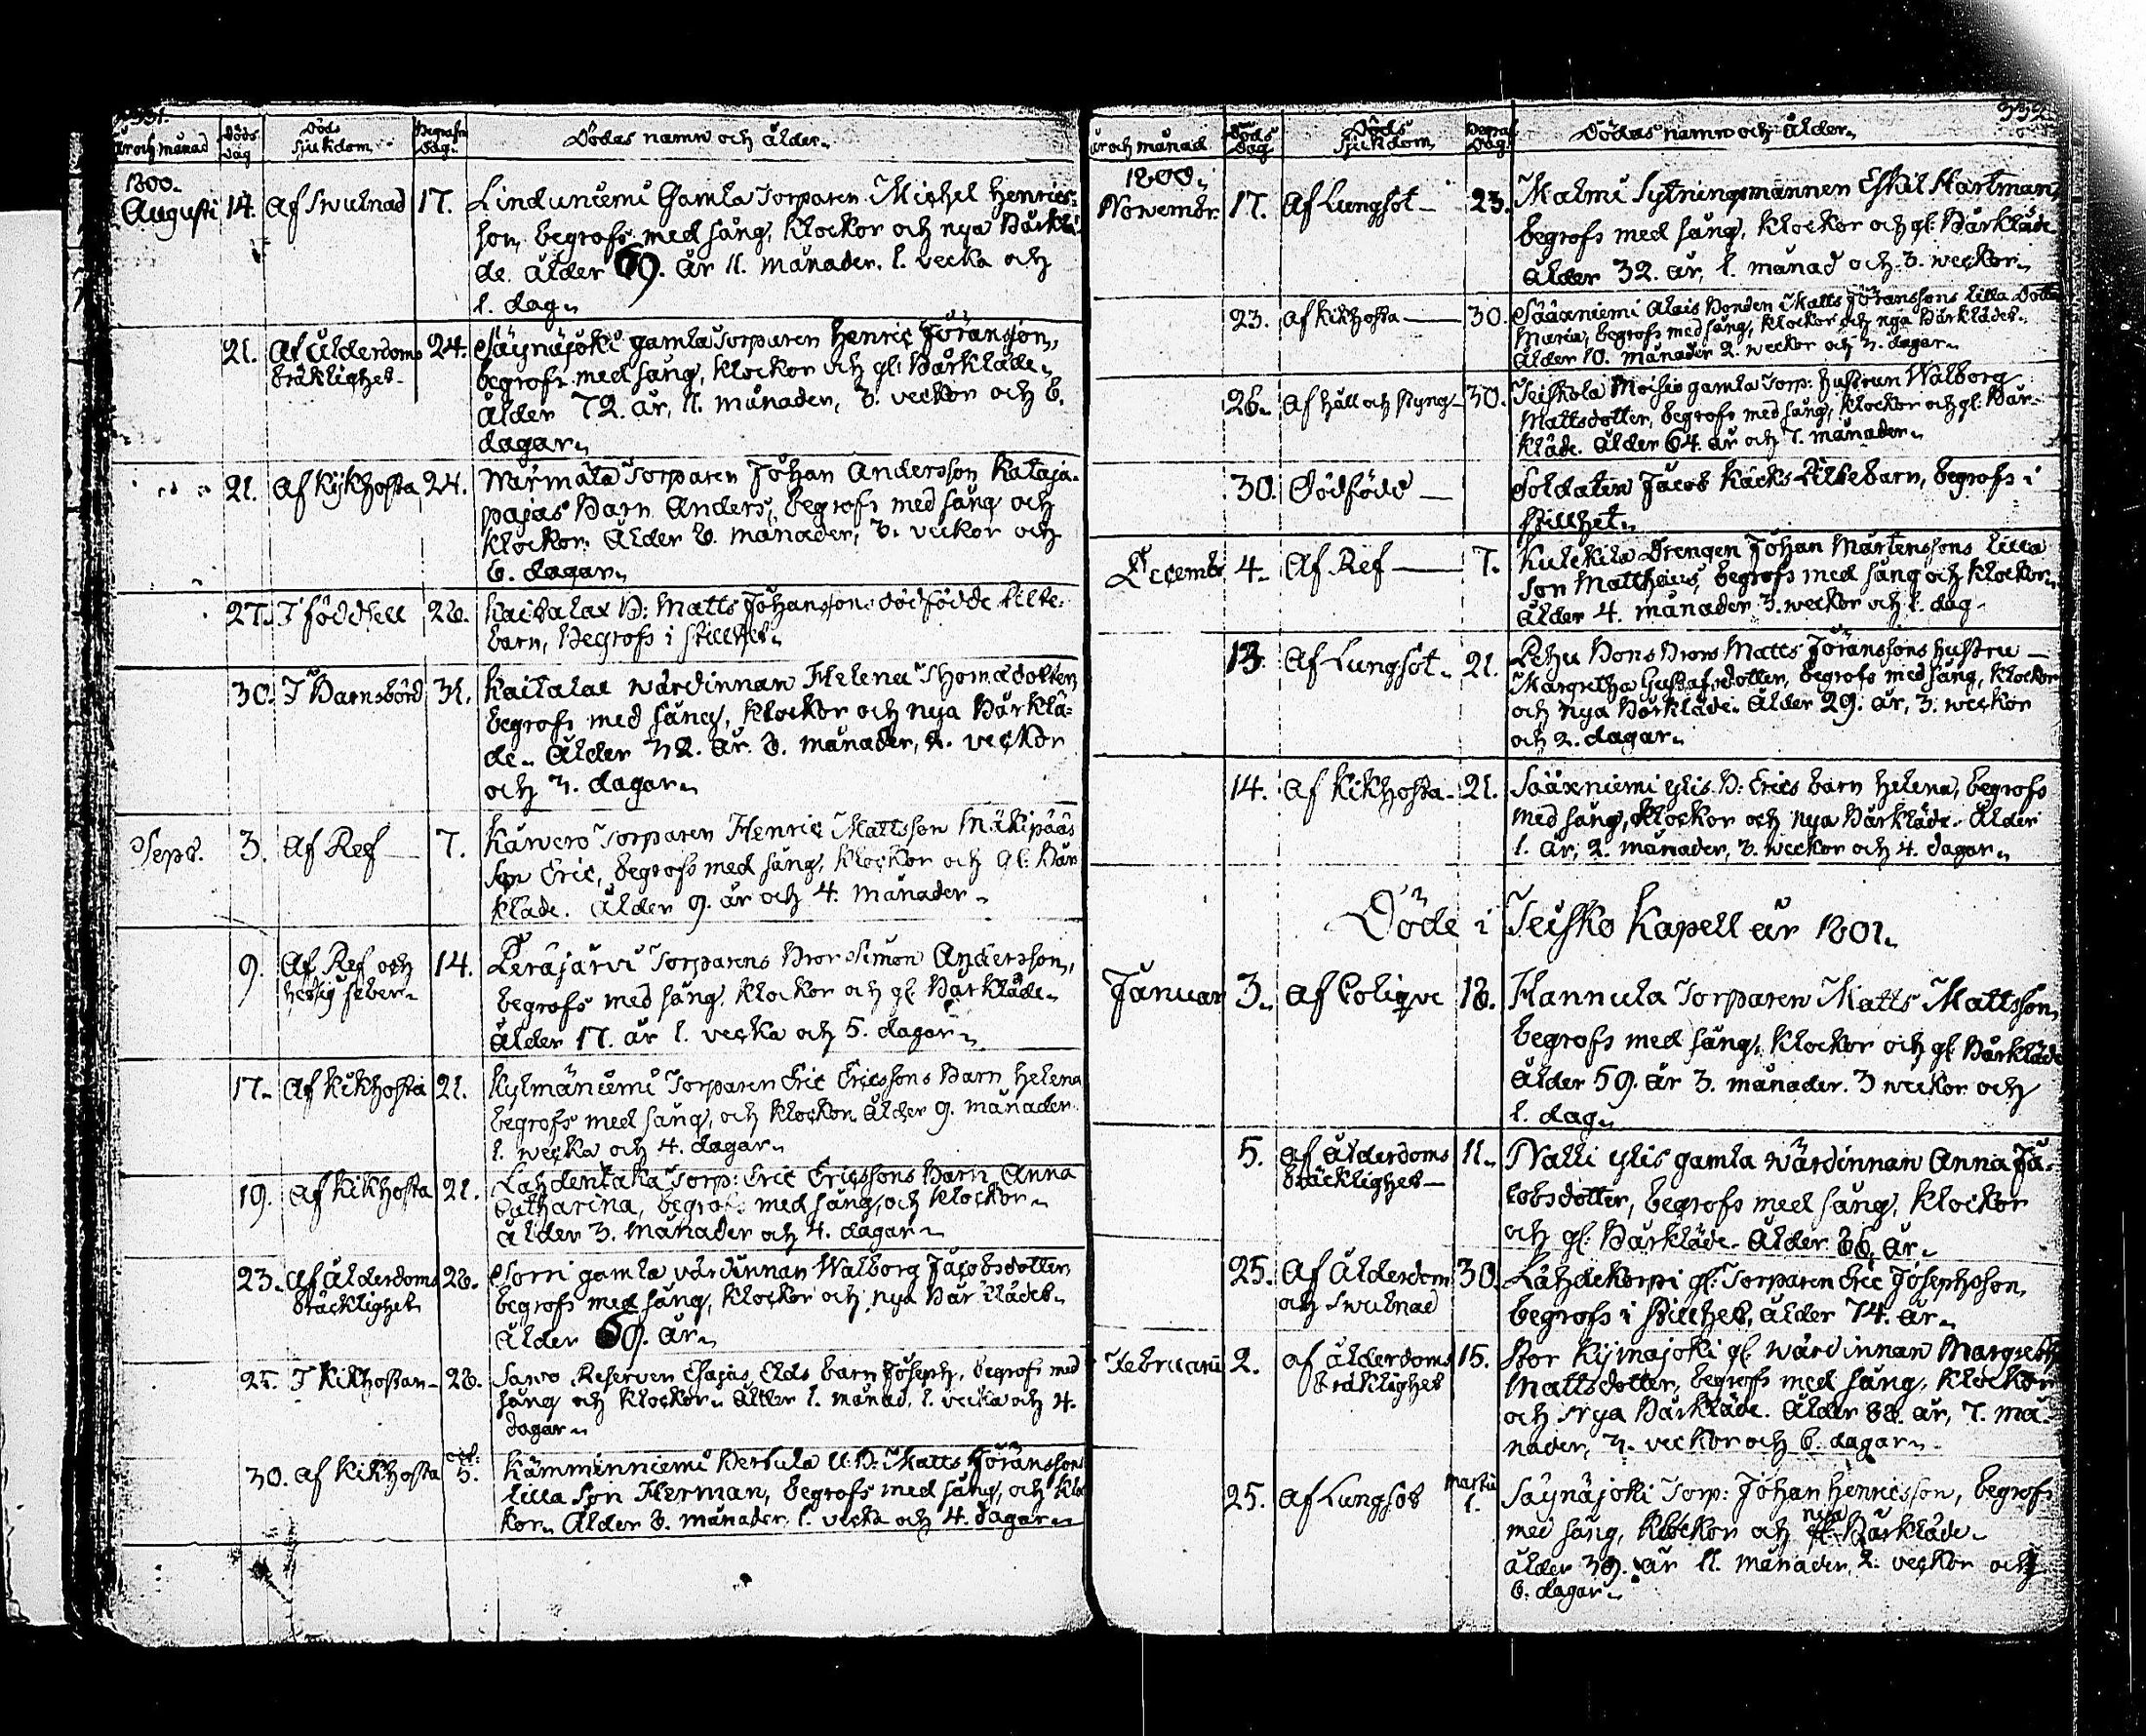 331.
År och månad Döds Dag Döds Sjukdom Begrafn: Dag. Dödas namn och ålder.
1800.
Augusti 14. Af Swulnad 17. Linduniemi Gamla Torparen Michel Henrics:
son, begrofs med sång, klockor och nya Bårklä:
de. Ålder 69. år 11. månader. 1. vecka och
1. dag.
21. Af Ålderdoms 24. Säynäjoki gamla Torparen Henric Jöransson,
bräklighet. begrofs med sång, klockor och gl: Bårkläde.
Ålder 72. år, 11. månader, 3. veckor och 6.
dagar.
21. Af Kikhosta 24. Märmälä Torparen Johan Andersson Kataja-
pajas Barn Anders, begrofs med sång och
klockor. Ålder 8. månader, 3. veckor och
6. dagar.
27. I födslell 28. Kaitalax B: Matts Johanssons dödfödde Pilte:
barn, Begrofs i stillhet.
30. I Barnsbörd 31. Kaitalax wärdinnan Helena Thomædotter,
begrofs med sång, klockor och nya Bårklä:
de. Ålder 32. år. 8. månader, 2. veckor
och 3. dagar.
Sept. 3. Af Ref 7. Kårvero Torparen Henric Mattsson Mäkipääs
son Eric, begrofs med sång, klockor och gl: Bår
kläde. Ålder 9. år och 4. månader.
9. Af Ref och 14. Peräjärvi Torparens Bror Simon Andersson,
hetsig feber. begrofs med sång, klockor och gl: Bårkläde.
Ålder 17. år 1. vecka och 5. dagar.
17. Af Kikhosta 21. Kylmäniemi Torparen Eric Ericssons Barn Helena
begrofs med sång, och klockor. Ålder 9. månader
1. wecka och 4. dagar.
19. Af Kikhosta 21. Lahdentaka Torp: Eric Ericssons Barn Anna
Catharina, begrofs med sång, och klockor.
Ålder 3. månader och 4. dagar.
23. Af ålderdoms 28. Sorri gamla värdinnan Walborg Jacobsdotter
bräcklighet begrofs med sång, klockor och nya Bårklädet.
Ålder 69. år.
25. I Kikhostan 28. Savo Reserven Esajas Elds barn Joseph, begrofs med
sång och klockor. Ålder 1. månad, 1. vecka och 4.
dagar.
30. Af Kikhosta oct: 5. Kämmenniemi Perttula U: B: Matts Jöranssons
lilla son Herman, begrofs med sång, och kloc
kor. Ålder 8. månader, 1. vecka och 4. dagar.
332.
År och månad Döds Dag Döds Sjukdom Begraf: Dag. Dödas namn och Ålder.
1800.
Novembr. 17. Af Lungsot 23. Malmi Sytningsmannen Eskil Hartman,
begrofs med sång, klockor och gl: Bårkläde
Ålder 32. år, 1. månad och 3. weckor.
23. Af Kikhosta 30. Sääxniemi Alais Bonden Matts Jöranssons lilla Dotter
Maria, begrofs med sång, klockor och nya Bårklädet.
Ålder 10. månader 2. weckor och 3. dagar.
26. Af håll och styng 30. Teiskola Moisio gamla Torp: hustrun Walborg
Mattsdotter, begrofs med sång, klockor och gl: Bår-
kläde. Ålder 64. år och 7. månader.
30. Dödföd Soldaten Jacob Käcks Piltebarn, begrofs i
stillhet.
Decembr 4. Af Ref 7. Kulckila Drengen Johan Mårtenssons lilla
son Matthæus, begrofs med sång och klockor.
Ålder 4. månader 3. weckor och 1. dag.
13. Af Lungsot. 21. Pehu Bons Brors Matts Jöranssons hustru
Margretha Gustafsdotter, begrofs med sång, klockor
och nya Bårkläde. Ålder 29. år, 3. weckor
och 2. dagar.
14. Af Kikhosta 21. Sääxniemi Ylis B: Erics barn Helena, begrofs
med sång, klockor och nya Bårkläde. Ålder
1. år, 2. månader, 3. weckor och 4. dagar.
Döde i Teisko Kapell år 1801.
Januar 3. Af Colique 18. Hannula Torparen Matts Mattsson,
begrofs med sång, klockor och gl: Bårkläde
Ålder 59. år 3. månader. 3 weckor och
1. dag.
5. Af ålderdoms 11. Nalli Ylis gamla wärdinnan Anna Ja-
bräcklighet cobsdotter, begrofs med sång, klockor
och gl: Bårkläde. Ålder 86. år.
25. Af Ålderdom 30. Lähdekorpi gl: Torparen Eric Josephsson,
och Swulnad begrofs i stillhet, ålder 74. år.
Februarii 2. af ålderdoms 15. Stor Kijmajoki gl: wärdinnan Margreth
bräklighet Mattsdotter, begrofs med sång, klockor
och nya Bårkläde. Ålder 88. år, 7. må-
nader, 3. veckor och 6. dagar.
25. Af Lungsot Martii 1. Säynäjoki Torp: Johan Henricsson, begrofs
med sång, klockor och nya Bårkläde.
ålder 39. år 11. månader, 2. veckor och
6. dagar.